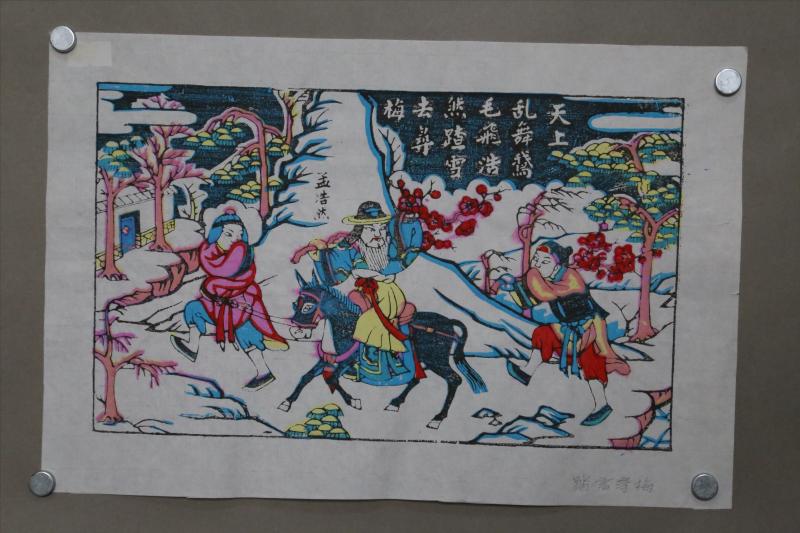 天上
乱舞鵞
毛飛浩
然踏雪
去尋
梅
孟浩然
踏雪尋梅